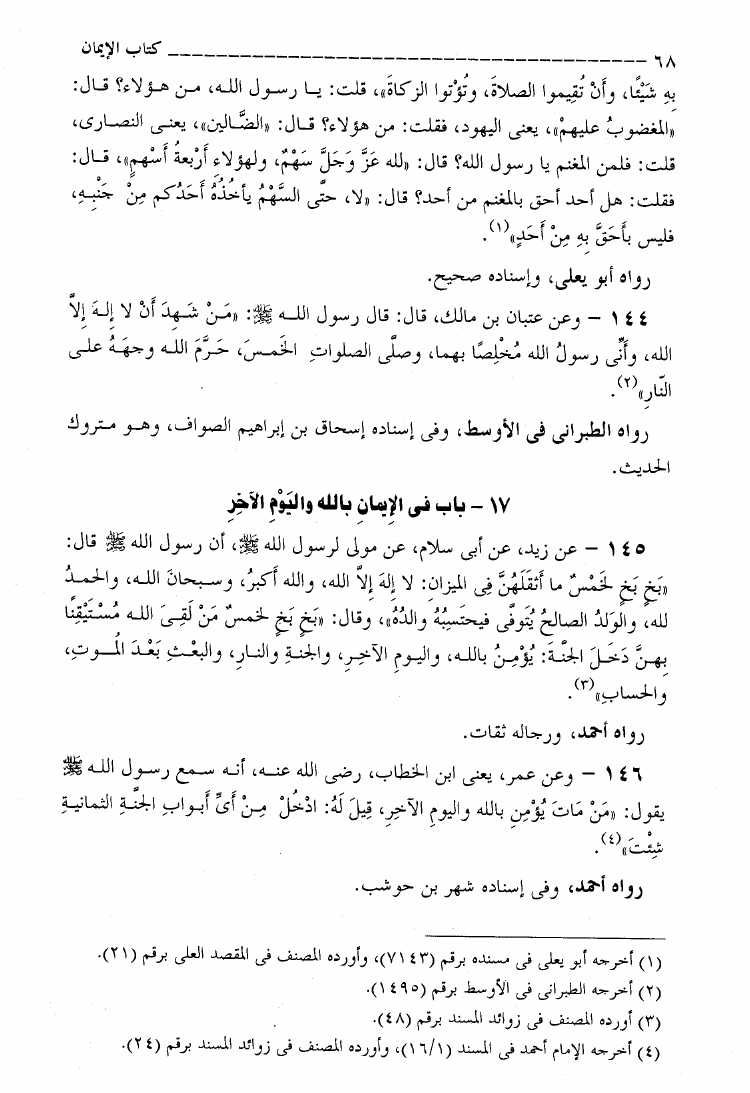 ٦٨ ــــــــــــــــــــــــــــــــــــــــــــــــــــــ كتاب الإيمان
بِهِ شَيْئًا، وأَنْ تُقِيموا الصلاةَ، وتُؤْتوا الزكاةَ»، قلت: يـا رسـول اللـه، مـن هـؤلاء؟ قـال:
«المغضوبُ عليهِمْ»، يعنى اليهود، فقلت: من هؤلاء؟ قـال: «الضَّـالين»، يعنـى النصـارى،
قلت: فلمن المغنم يا رسول الله؟ قال: «لله عَزَّ وَجَلَّ سَهْمٌ، ولهؤلاءِ أَرْبعةُ أَسْهمٍ»، قـال:
فقلت: هل أحد أحق بالمغنم من أحد؟ قال: «لا، حتَّى السَّهْمُ يأخُذُهُ أَحَدُكم مِنْ جَنْبِهِ،
فليس بأحَقَّ بِهِ مِنْ أَحَدٍ»(١).
رواه أبو يعلى، وإسناده صحيح.
١٤٤ – وعن عتبان بن مالك، قال: قال رسول اللـه ﷺ: «مَـنْ شَـهِدَ أَنْ لا إلهَ إلاَّ
الله، وأنِّى رسولُ الله مُخْلِصًا بهما، وصلَّى الصلواتِ الخَمـسَ، حَـرَّمَ اللـه وجهَـهُ علـى
النَّارِ»(٢).
رواه الطبرانى فى الأوسط، وفى إسناده إسحاق بن إبراهيم الصواف، وهـو مـتروك
الحديث.
١٧ – باب فى الإِيمانِ باللهِ واليَوْمِ الآخِرِ
١٤٥ – عن زيد، عن أبى سلام، عن مولى لرسول الله ﷺ، أن رسول الله ﷺ قال:
«بَخٍ بَخٍ لخَمْسٌ ما أَثْقَلَهُنَّ فِى الميزانِ: لا إلهَ إلاَّ الله، والله أكبرُ، وسـبحانَ اللـه، والحمـدُ
لله، والوَلدُ الصالحُ يُتَوفَّى فيحتَسِبُهُ والدُهُ»، وقال: «بَخٍ بَخٍ لخمسٌ مَنْ لَقِىَ اللـه مُسْـتَيْقِنًا
بهـنَّ دَخَـلَ الجَنَّـةَ: يُؤْمِـنُ باللـه، واليـومِ الآخِـرِ، والجنـةِ والنـارِ، والبعْـثِ بَعْـدَ المُـوتِ،
والحسابِ»(٣).
رواه أحمد، ورجاله ثقات.
١٤٦ – وعن عمر، يعنى ابن الخطاب، رضى الله عنـه، أنـه سـمع رسـول اللـه ﷺ
يقول: «مَنْ مَاتَ يُؤْمِنِ بالله واليومِ الآخِرِ، قِيلَ لَهُ: ادْخُلْ مِـنْ أَىِّ أبـوابِ الجَنَّـةِ الثمانيـةِ
شِئْتَ»(٤).
رواه أحمد، وفى إسناده شهر بن حوشب.
(١) أخرجه أبو يعلى فى مسنده برقم (٧١٤٣)، وأورده المصنف فى المقصد العلى برقم (٢١).
(٢) أخرجه الطبرانى فى الأوسط برقم (١٤٩٥).
(٣) أورده المصنف فى زوائد المسند برقم (٤٨).
(٤) أخرجه الإمام أحمد فى المسند (١٦/١)، وأورده المصنف فى زوائد المسند برقم (٢٤).